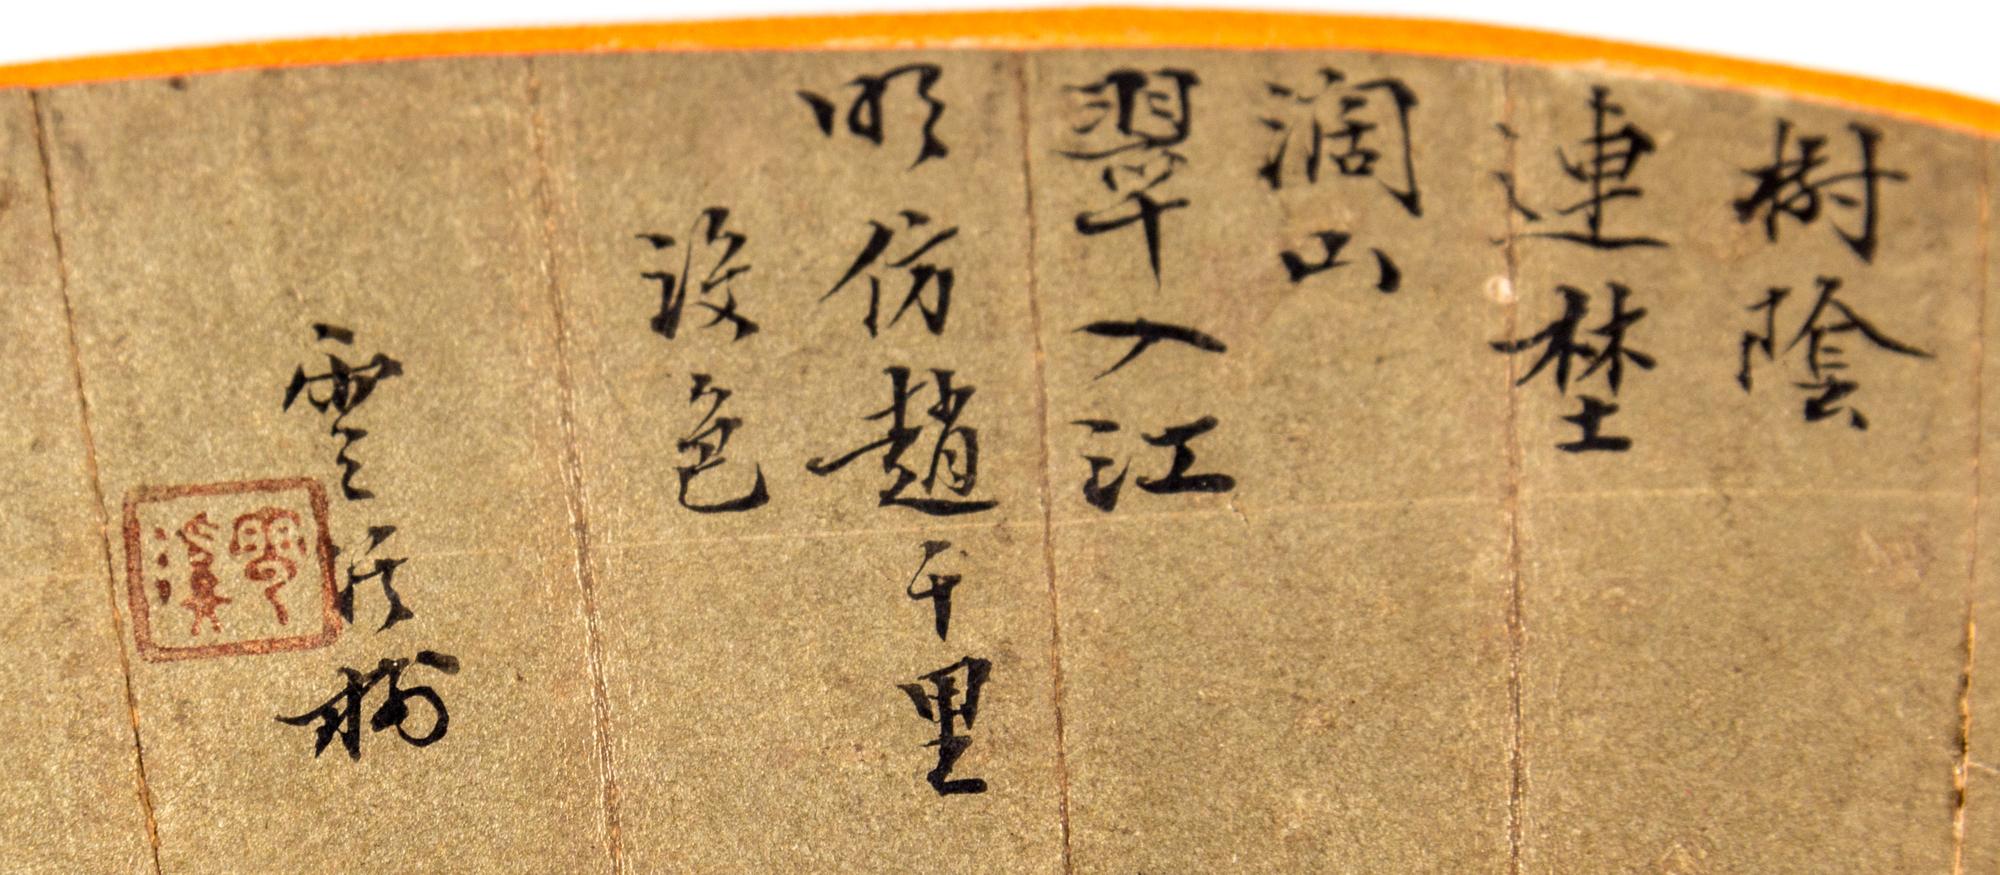 樹陰
連埜
濶山
翠入江
明仿趙千里
設色
雲溪
雲溪